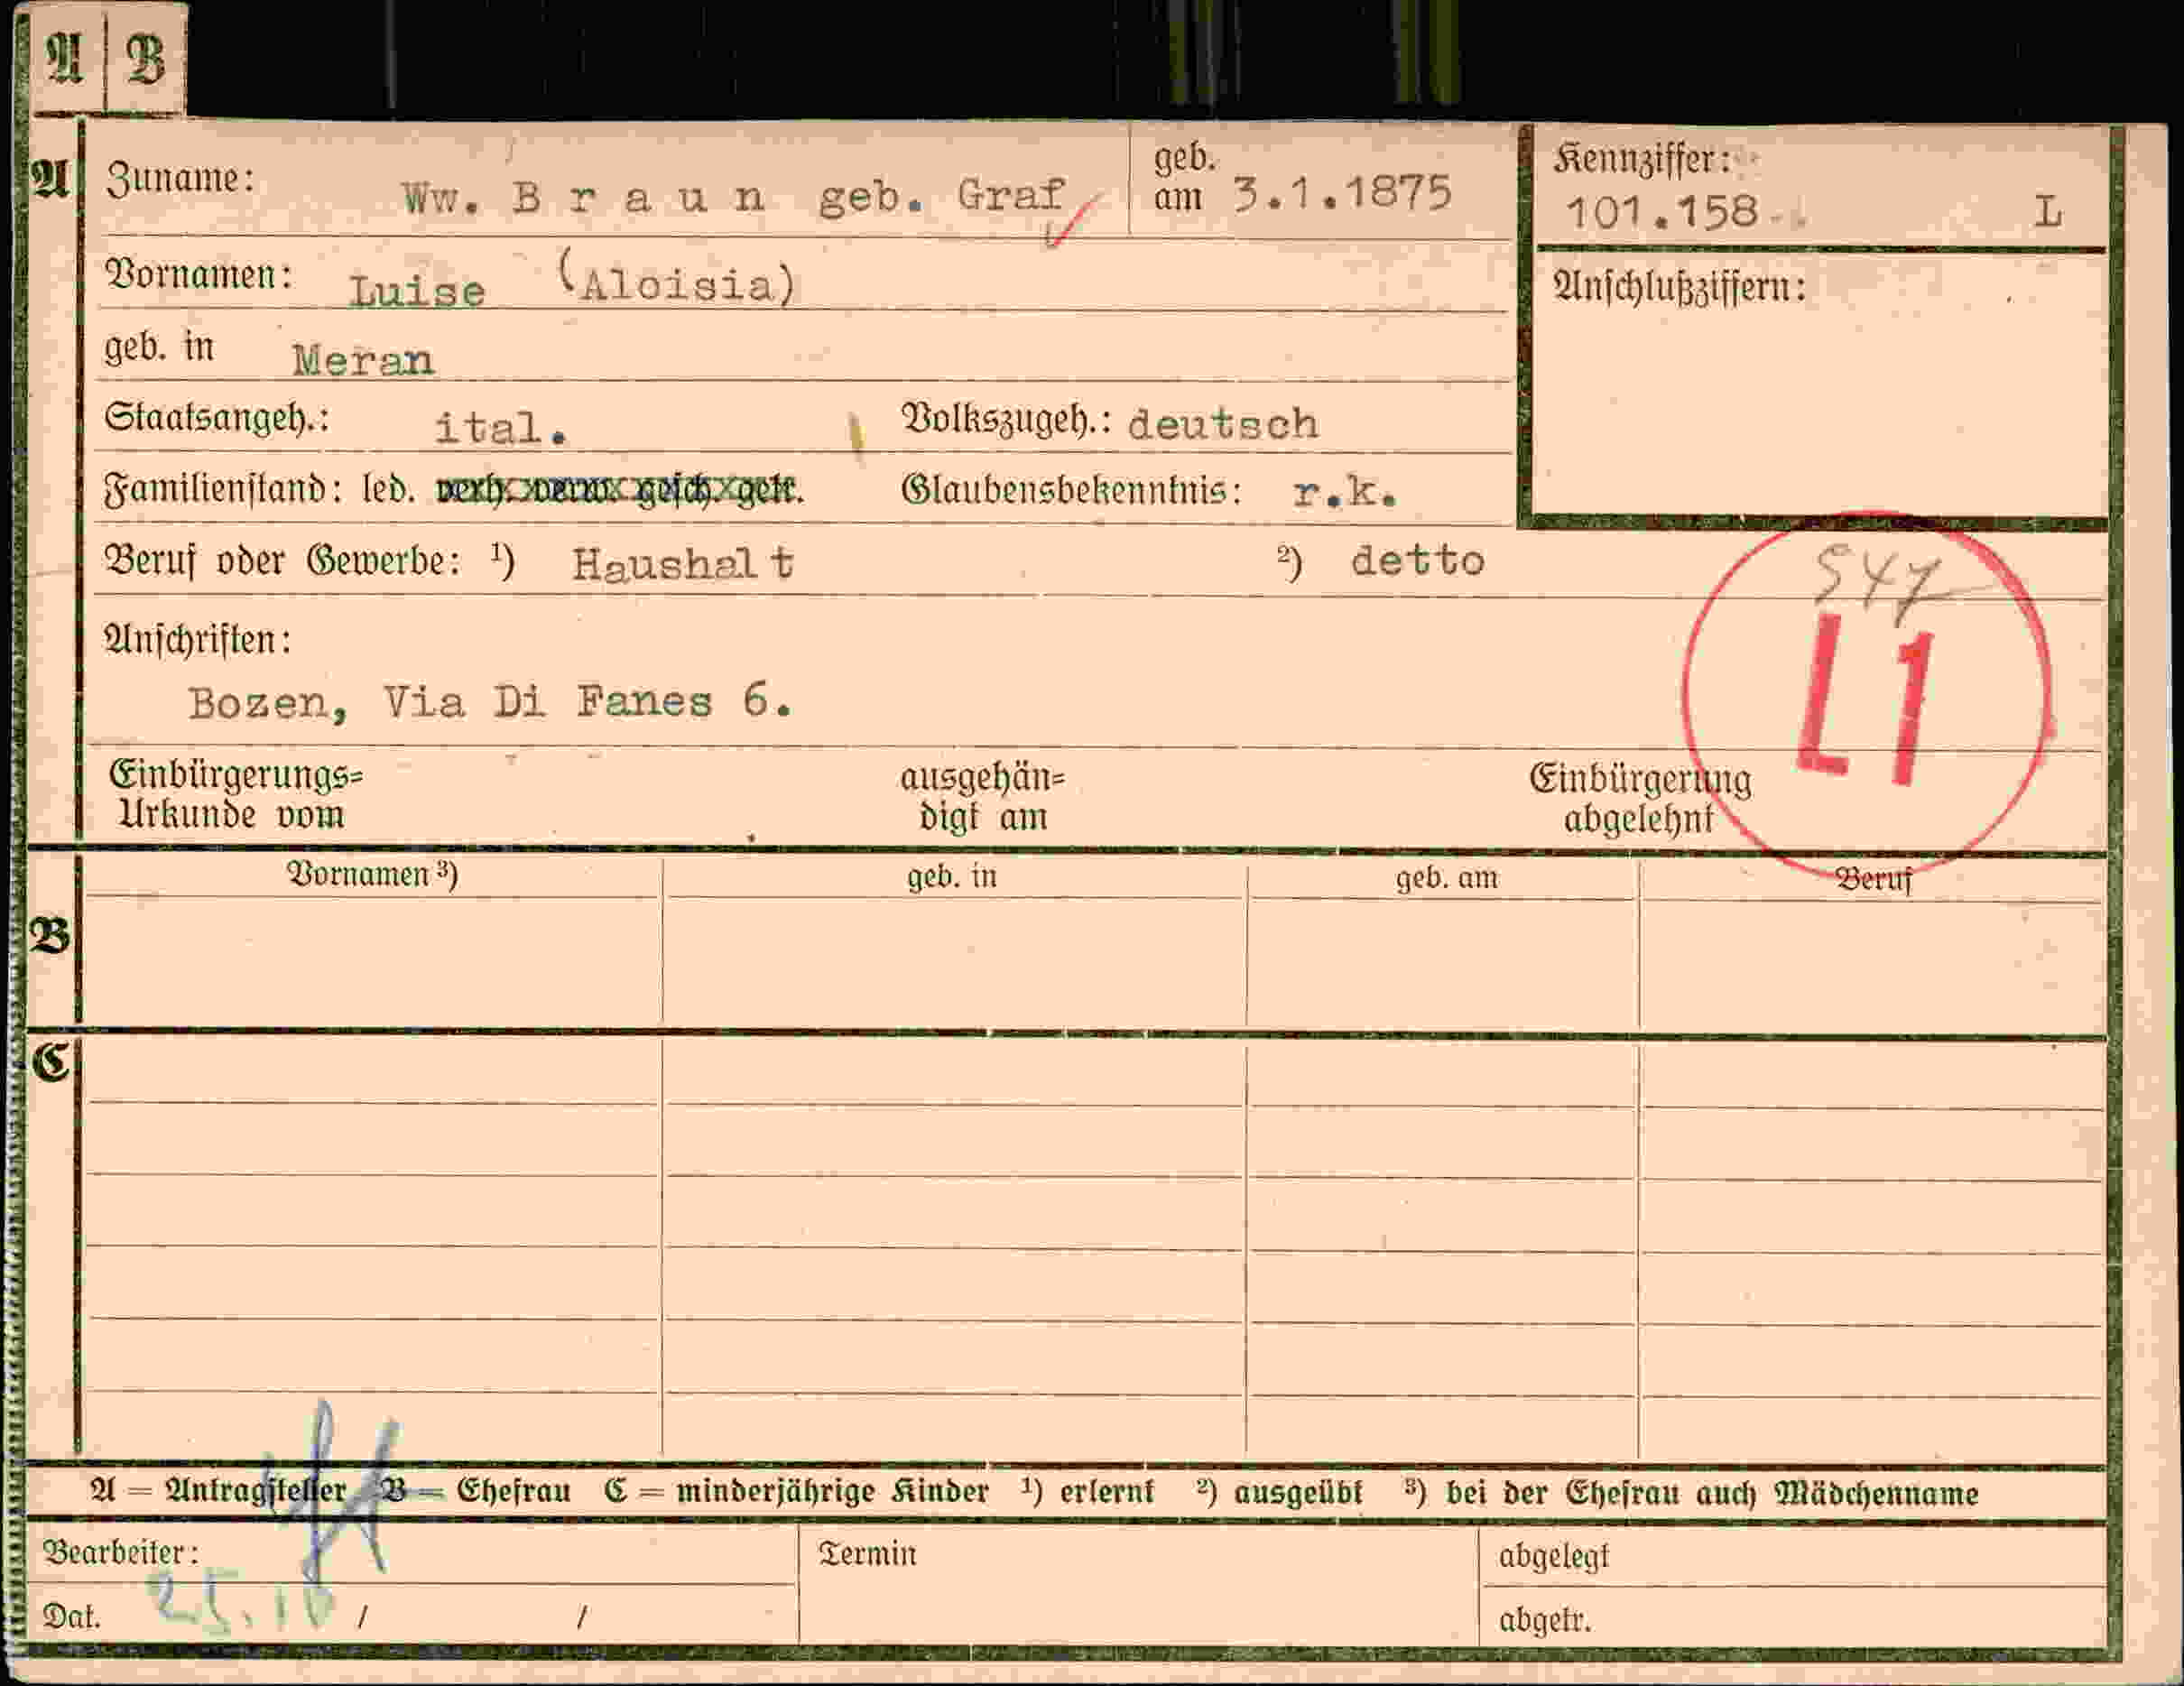 A B
A
Zuname: Ww. B r a u n geb. Graf
geb. am 3.1.1875
Kennziffer:
101.158 L
Vornamen: Luise (Aloisia)
Anschlußziffern:
geb. in Meran
Staatsangeh.: ital. Volkszugeh.: deutsch
Familienstand: led. verh. verw. gesch. getr. Glaubensbekenntnis: r.k.
Beruf oder Gewerbe: ¹) Haushalt ²) detto
547
L1
Anschriften:
Bozen, Via Di Fanes 6.
Einbürgerungs=
Urkunde vom
ausgehän=
digt am
Einbürgerung
abgelehnt
B
Vornamen ³) geb. in geb. am Beruf
C
A = Antragsteller B = Ehefrau C = minderjährige Kinder ¹) erlernt ²) ausgeübt ³) bei der Ehefrau auch Mädchenname
Bearbeiter: Termin abgelegt
Dat. 25.10 / / abgetr.